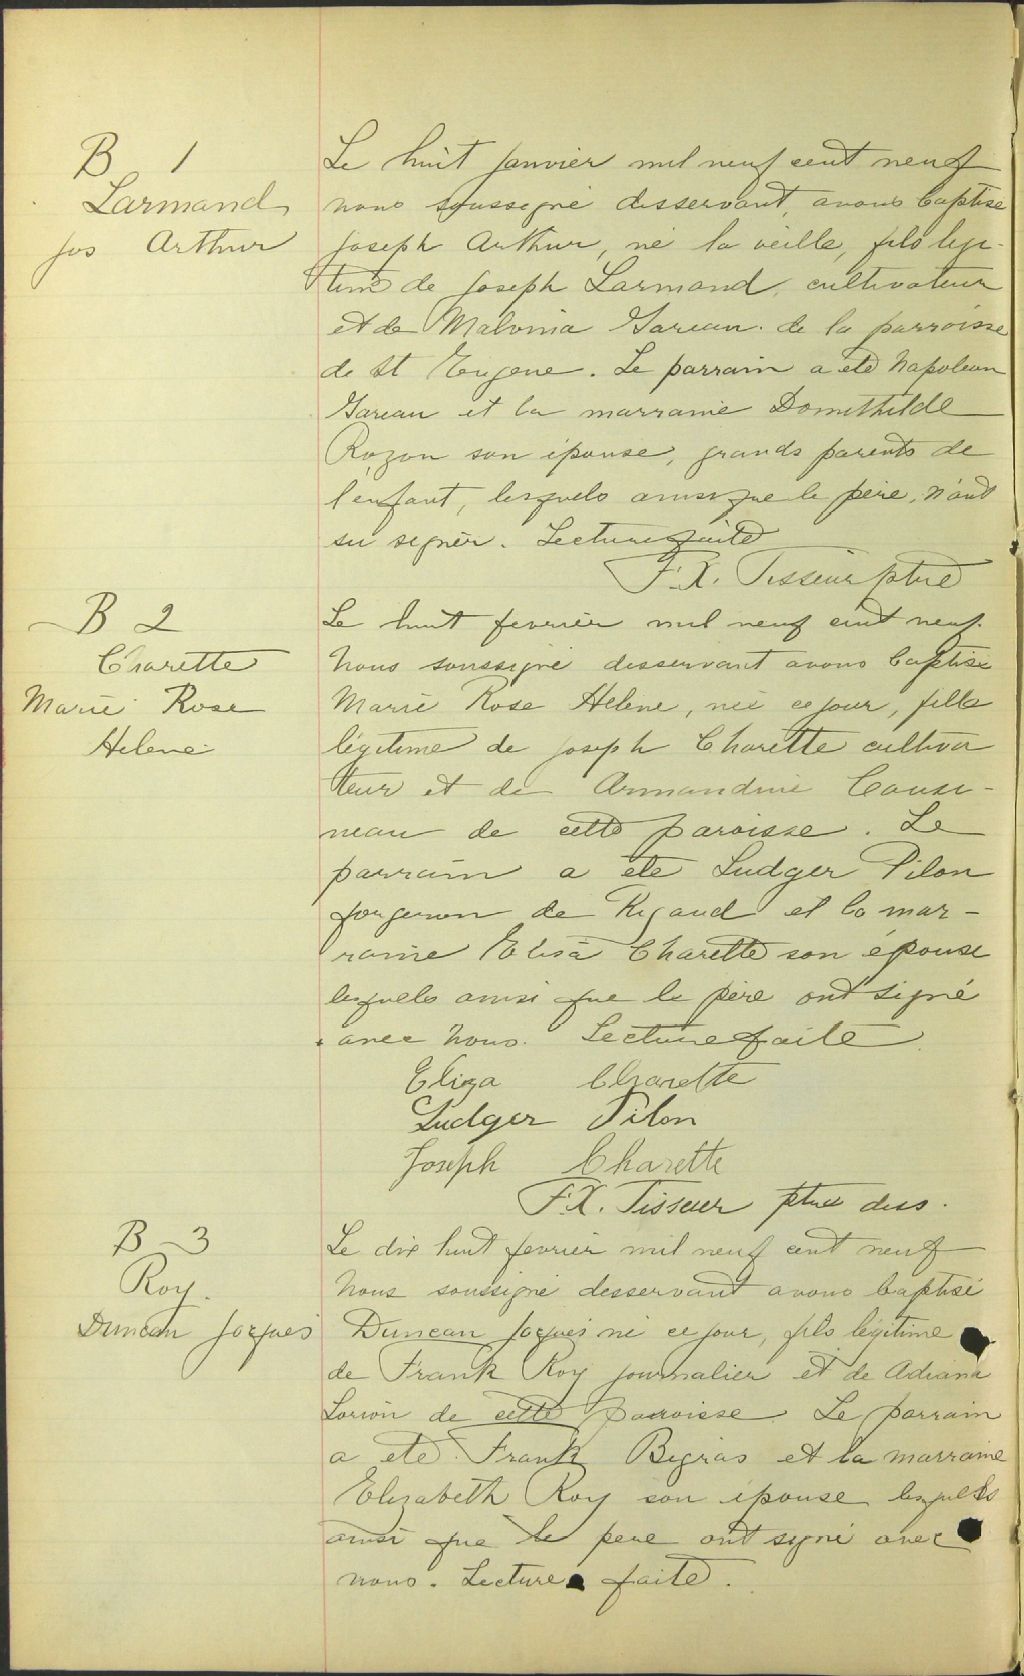 B 1
Larmand
Jos Arthur
Le huit janvier mil neuf cent neuf
nous soussigné desservant, avons baptisé
Joseph Arthur, né la veille, fils légi-
time de Joseph Larmand, cultivateur
et de Malvina Gareau de la parroisse
de St Eugene. Le parrain a été Napoleon
Gareau et la marraine Domithilde
Rozon son épouse, grands parents de
l'enfant, lesquels ainsi que le père, n'ont
su signer. Lecture faite
F.X. Tisseur ptre
B 2
Charette
Marie Rose
Helene
Le huit fevrier mil neuf cent neuf
Nous soussigné desservant avons baptisé
Marie Rose Helene, née ce jour, fille
légitime de Joseph Charette cultiva
teur et de Armandine Cousi-
neau de cette paroisse. Le
parrain a été Ludger Pilon
forgeron de Rigaud et la mar-
raine Elisa Charette son épouse
lesquels ainsi que le père ont signé
avec nous. Lecture faite
Eliza Charette
Ludger Pilon
Joseph Charette
F.X. Tisseur ptre dess.
B 3
Roy.
Duncan Jacques
Le dix huit fevrier mil neuf cent neuf
Nous soussigné desservant avons baptisé
Duncan Jacques né ce jour, fils légitime
de Frank Roy journalier et de Adriana
Lorion de cette parroisse Le parrain
a été Frank Bigras et la marraine
Elizabeth Roy son épouse lesquels
ainsi que le pere ont signé avec
nous. Lecture faite.